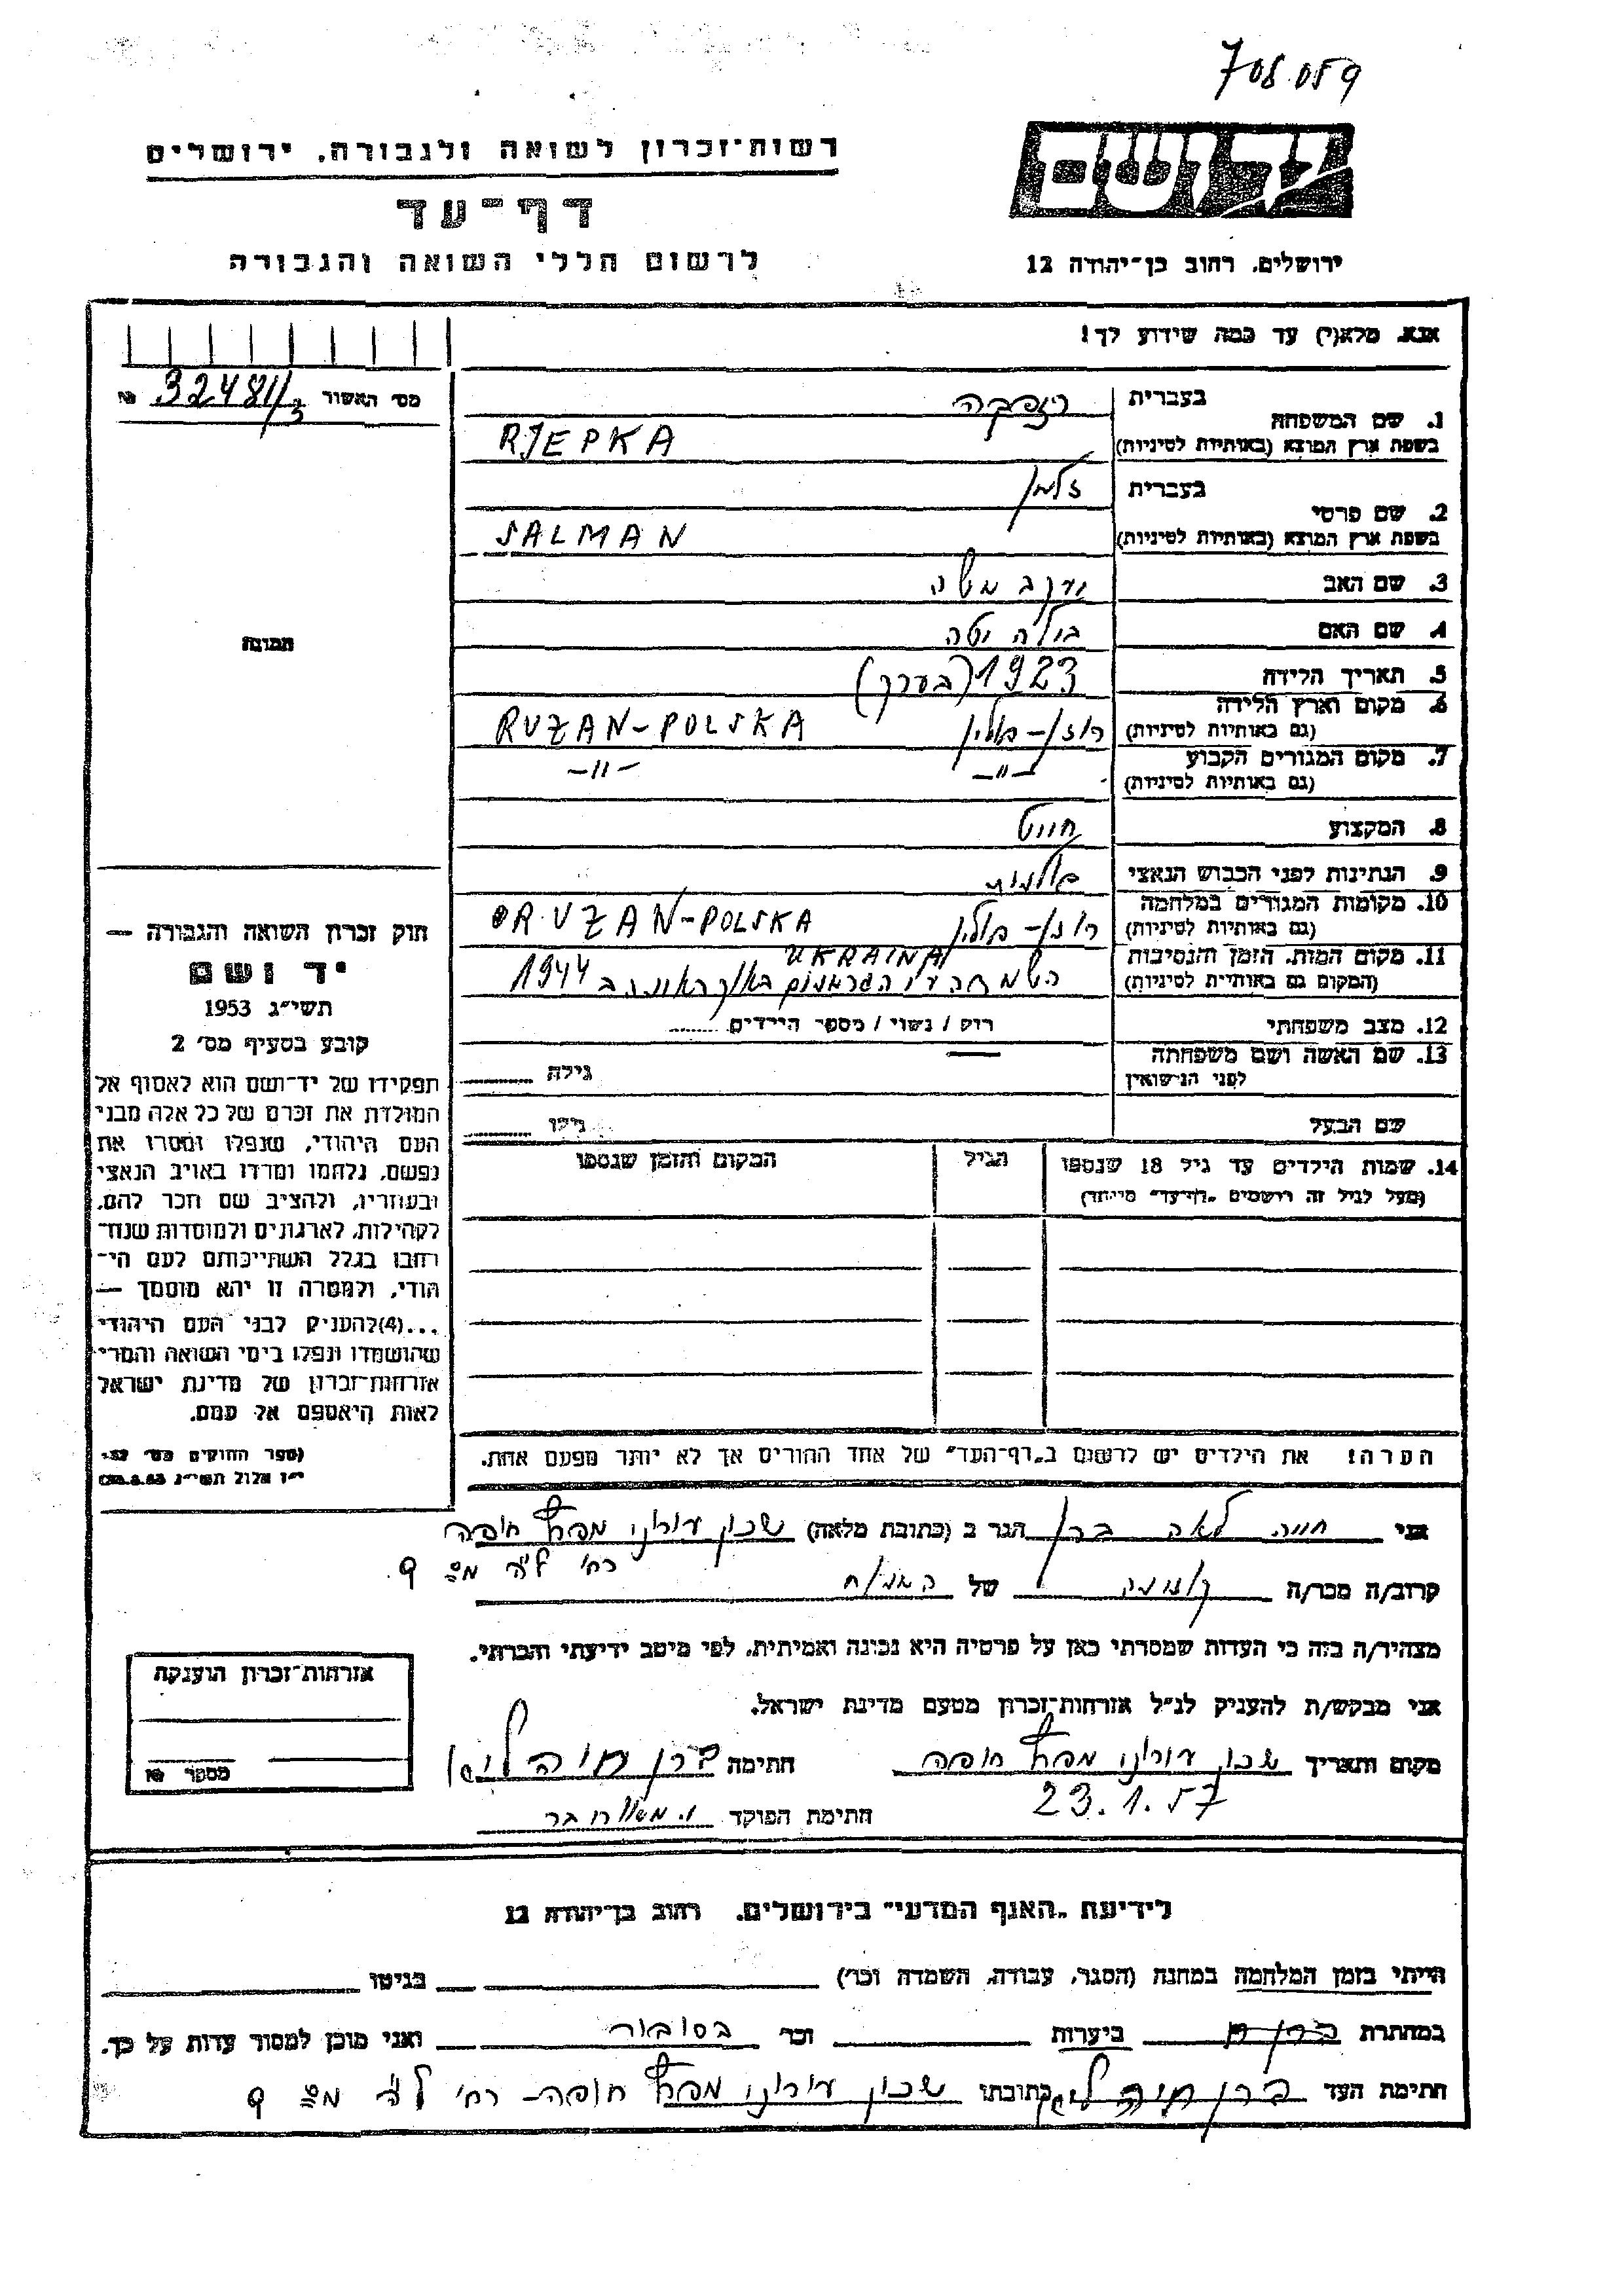 708.059
רשות־זכרון לשואה ולגבורה, ירושלים
דף־עד
לרשום חללי השואה והגבורה
ידושם
ירושלים, רחוב בן־יהודה 12
אנא, מלא(י) עד כמה שידוע לך!
מס׳ האשור 32481/3 №
1. שם המשפחה בעברית
בשפת ארץ המוצא (באותיות לטיניות) RJEPKA
2. שם פרטי בעברית זלמן
בשפת ארץ המוצא (באותיות לטיניות) SALMAN
3. שם האב יעקב משה
4. שם האם בולה יטה
5. תאריך הלידה 1923 (בערך)
6. מקום וארץ הלידה רוזן – פולין RUZAN – POLSKA
(גם באותיות לטיניות)
7. מקום המגורים הקבוע –״– –״–
(גם באותיות לטיניות)
8. המקצוע חייט
9. הנתינות לפני הכבוש הנאצי פולנית
10. מקומות המגורים במלחמה רוזן – פולין RUZAN – POLSKA
(גם באותיות לטיניות)
11. מקום המות, הזמן והנסיבות UKRAINA
(המקום גם באותיית לטיניות) ע״י הגרמנים באוקראינה ב 1944
12. מצב משפחתי רוק / נשוי / מספר הילדים
13. שם האשה ושם משפחתה — גילה
לפני הנישואין
שם הבעל גילו
14. שמות הילדים עד גיל 18 שנספו הגיל המקום והזמן שנספו
(מעל לגיל זה רושמים „דף־עד״ מיוחד)
הערה! את הילדים יש לרשום ב„דף־העד״ של אחד ההורים אך לא יותר מפעם אחת.
תמונה
חוק זכרון השואה והגבורה —
יד ושם
תשי״ג 1953
קובע בסעיף מס׳ 2
תפקידו של יד־ושם הוא לאסוף אל
המולדת את זכרם של כל אלה מבני
העם היהודי, שנפלו ומסרו את
נפשם, נלחמו ומרדו באויב הנאצי
ובעוזריו, ולהציב שם וזכר להם,
לקהילות, לארגונים ולמוסדות שנח־
רבו בגלל השתייכותם לעם הי־
הודי, ולמטרה זו יהא מוסמך —
...(4)להעניק לבני העם היהודי
שהושמדו ונפלו בימי השואה והמרי
אזרחות־זכרון של מדינת ישראל
לאות היאספם אל עמם.
(ספר החוקים מס׳ 132,
י״ז אלול תשי״ג 28.8.53)
אני חיה לאה ברן הגר ב (כתובת מלאה) שכון עירוני מפרץ חיפה
רח׳ ל״ה מס 9
קרוב/ה מכר/ה של
מצהיר/ה בזה כי העדות שמסרתי כאן על פרטיה היא נכונה ואמיתית, לפי מיטב ידיעתי והכרתי.
אני מבקש/ת להעניק לנ״ל אזרחות־זכרון מטעם מדינת ישראל.
מקום ותאריך שכון עירוני מפרץ חיפה חתימה ברן חיה
23.1.57 חתימת הפוקד
אזרחות־זכרון הוענקה
מספר №
לידיעת „האגף המדעי״ בירושלים, רחוב בן־יהודה 12
הייתי בזמן המלחמה במחנה (הסגר, עבודה, השמדה וכו׳) בגיטו
במחתרת ביערות וכו׳ ואני מוכן למסור עדות על כך.
חתימת העד ברן חיה כתובתו שכון עירוני מפרץ חיפה – רח׳ ל״ה מס 9